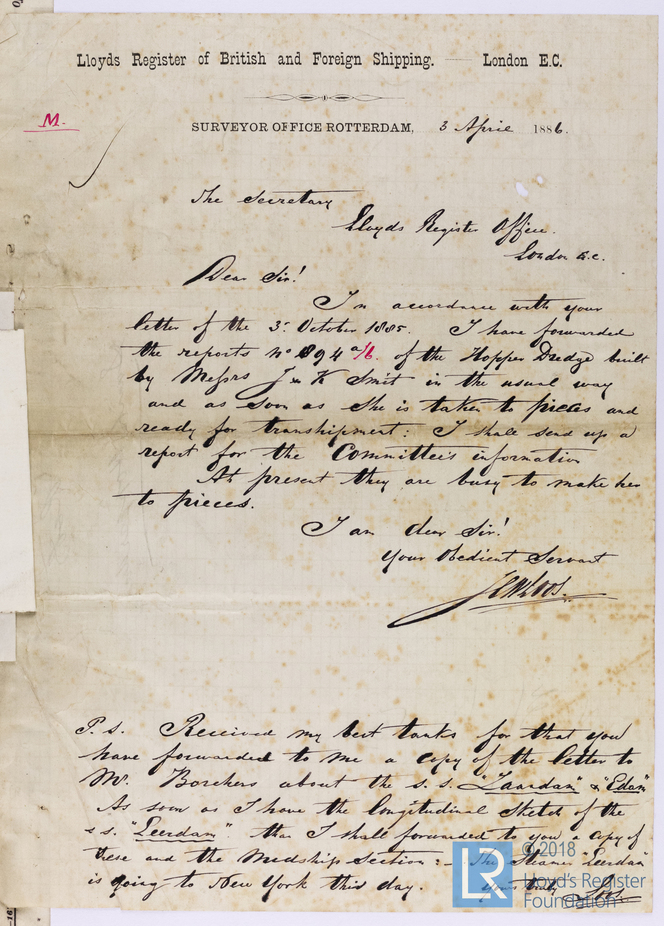 Lloyds Register of British and Foreign Shipping. — London E.C.
M.
SURVEYOR OFFICE ROTTERDAM, 3 April 1886.
The Secretary
Lloyds Register Office.
London E.C.
Dear Sir!
In accordance with your
letter of the 3: October 1885. I have forwarded
the reports No 894 a/b. of the Hopper Dredge built
by Messrs J & K Smit in the usual way
and as soon as she is taken to pieces and
ready for transhipment: I shall send up a
report for the Committee's information
At present they are busy to make her
to pieces.
I am dear Sir!
Your Obedient Servant
P.S. Received my best tanks for that you
have forwarded to me a copy of the letter to
Mr. Borchers about the s.s. "Zaandam" & "Edam"
As soon as I have the longitudinal Sketch of the
s.s. "Leerdam". than I shall forwarded to you a copy of
these and the Midship Section:- The Steamer Leerdam
is going to New York this day. Yours truly
LR
© 2018
Lloyd's Register
Foundation